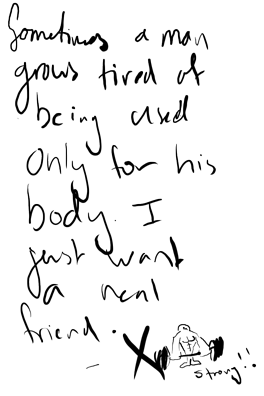 Sometimes a man
grows tired of
being used
only for his
body. I
just want
a real
friend.
– X
strong!!